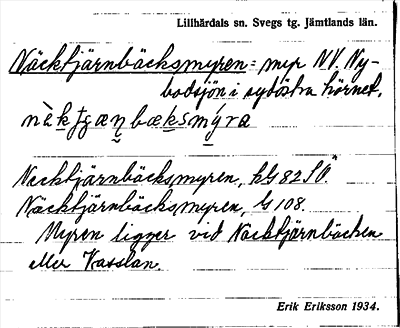 Lillhärdals sn. Svegs tg. Jämtlands län.
Näcktjärnbäcksmyren = myr NV. Ny-
bodsjön i sydöstra hörnet.
Necktjärnbäcksmyren, hG 82 SÖ.
Näcktjärnbäcksmyren, G 108.
Myren ligger vid Näcktjärnbäcken
eller Kasslan.
Erik Eriksson 1934.